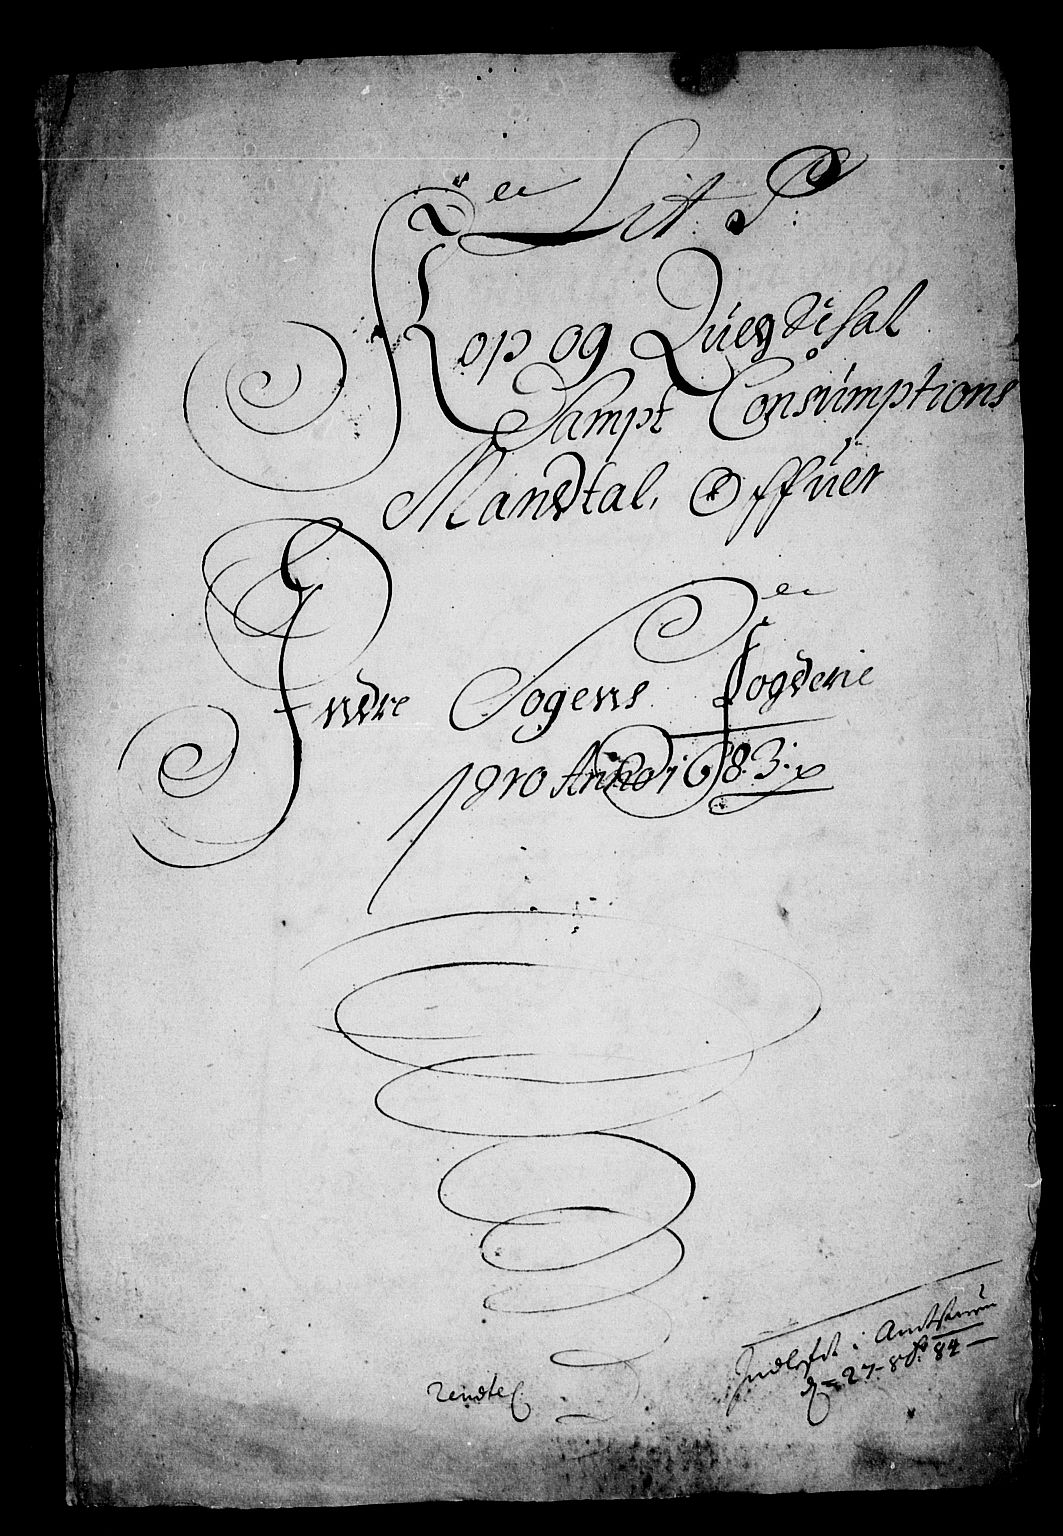 Lit P:
Kop og Quegskal
Sampt Consumptions
Mandtal, Offuer
Indre Sogens Fogderie
pro Anno 1683
Indlefret i Amtstuen
d= 27- 84